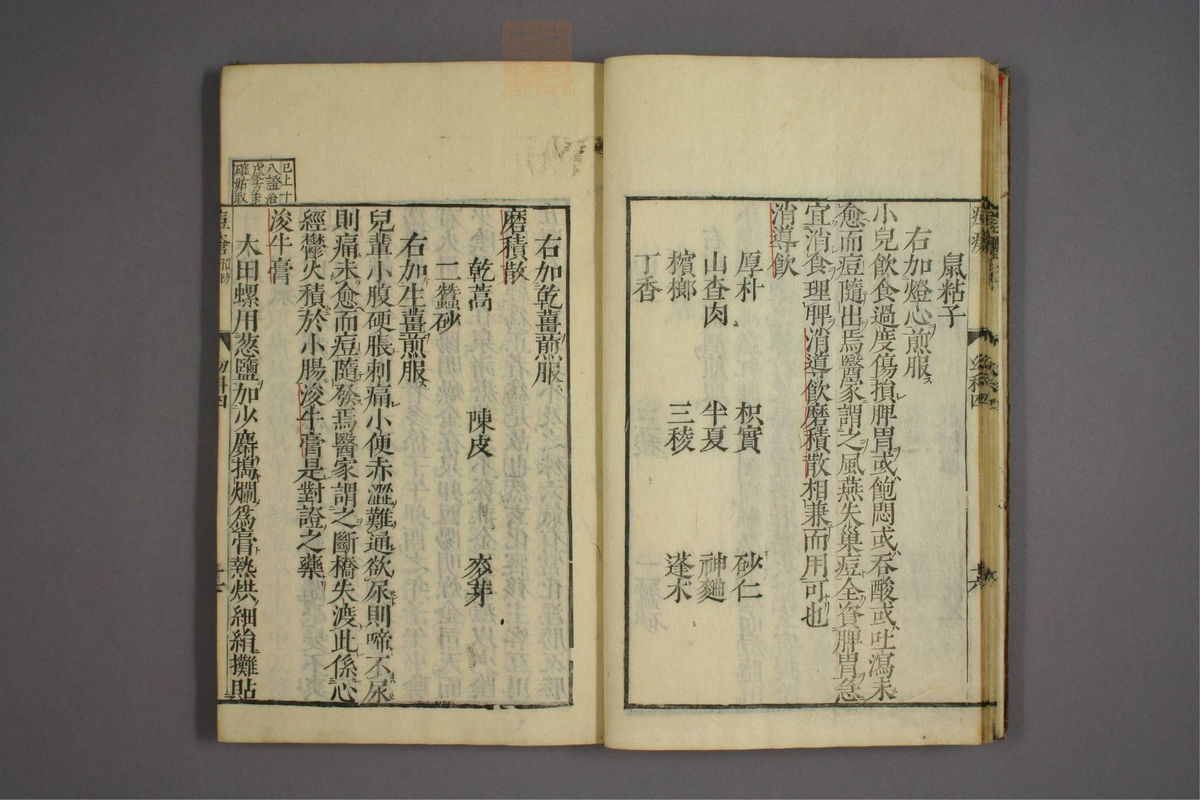 痘瘡
幼科四
鼠粘子
右加燈心煎服
小兒飲食過度傷損脾胃或飽悶或吞酸或吐瀉未
愈而痘隨出焉醫家謂之風燕失巢痘全資脾胃急
宜消食理脾消導飲磨積散相兼而用可也
消導飲
厚朴 枳實 砂仁
山查肉 半夏 神麯
檳榔 三稜 蓬朮
丁香
右加乾薑煎服
磨積散
乾蒿 陳皮 麥芽
二蠶砂
右加生薑煎服
兒輩小腹硬脹刺痛小便赤澀難通欲尿則啼不尿
則痛未愈而痘隨發焉醫家謂之斷橋失渡此係心
經鬱火積於小腸浚牛膏是對證之藥
浚牛膏
大田螺用葱鹽加少麝搗爛為膏熱烘細絹攤貼
已上十
八證治